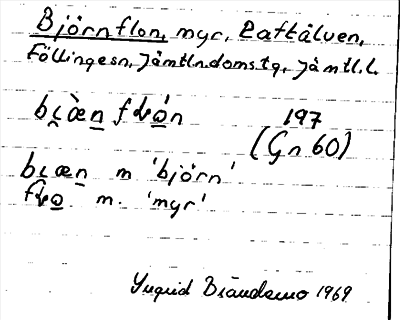 Björnflon, myr, Raftälven,
Föllingesn, Jämtln.doms.tg, Jämtl.l.
197
(Gn 60)
m 'björn'
m. 'myr'
Ingrid Brändemo 1969